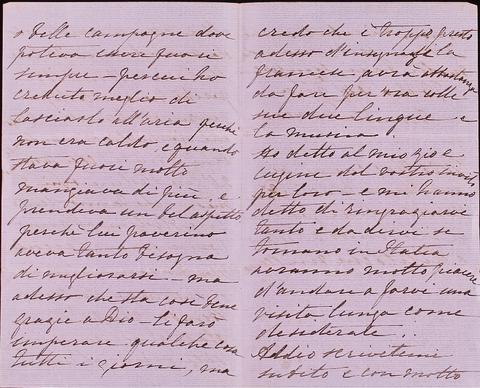 o delle campagne dove
poteva essere fuori
sempre – per cui ho
creduto meglio di
lasciarlo all'aria perchè
non era caldo, e quando
stava fuori molto
mangiava di più, e
prendeva un bel aspetto
perchè lui poverino
aveva tanto bisogna
di migliorarsi – ma
adesso che sta così bene
grazie a Dio – li farò
imparare qualche cosa
tutti i giorni, ma
credo che è troppo presto
adesso d'insegnarli la
francese, avrà abbastanza
da fare per ora colle
sue due lingue e
la musica.
Ho detto al mio zio e
cugine del vostro invito
per loro – e mi hanno
detto di ringraziarvi
tanto e da dirvi se
tornano in Italia
avranno molto piacere
d'andare a farvi una
visita lunga come
desiderate.
Addio scrivetemi
subito e con molto